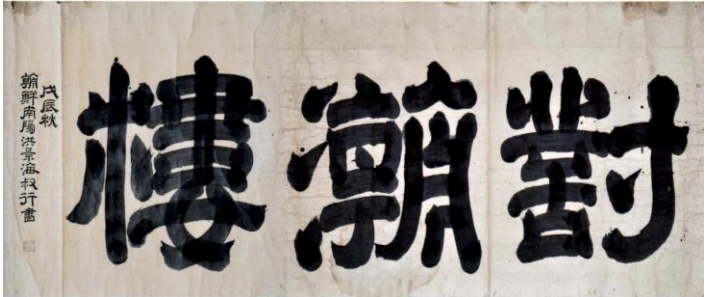 對潮樓
戊辰秋
朝鮮南陽洪景海叔行書